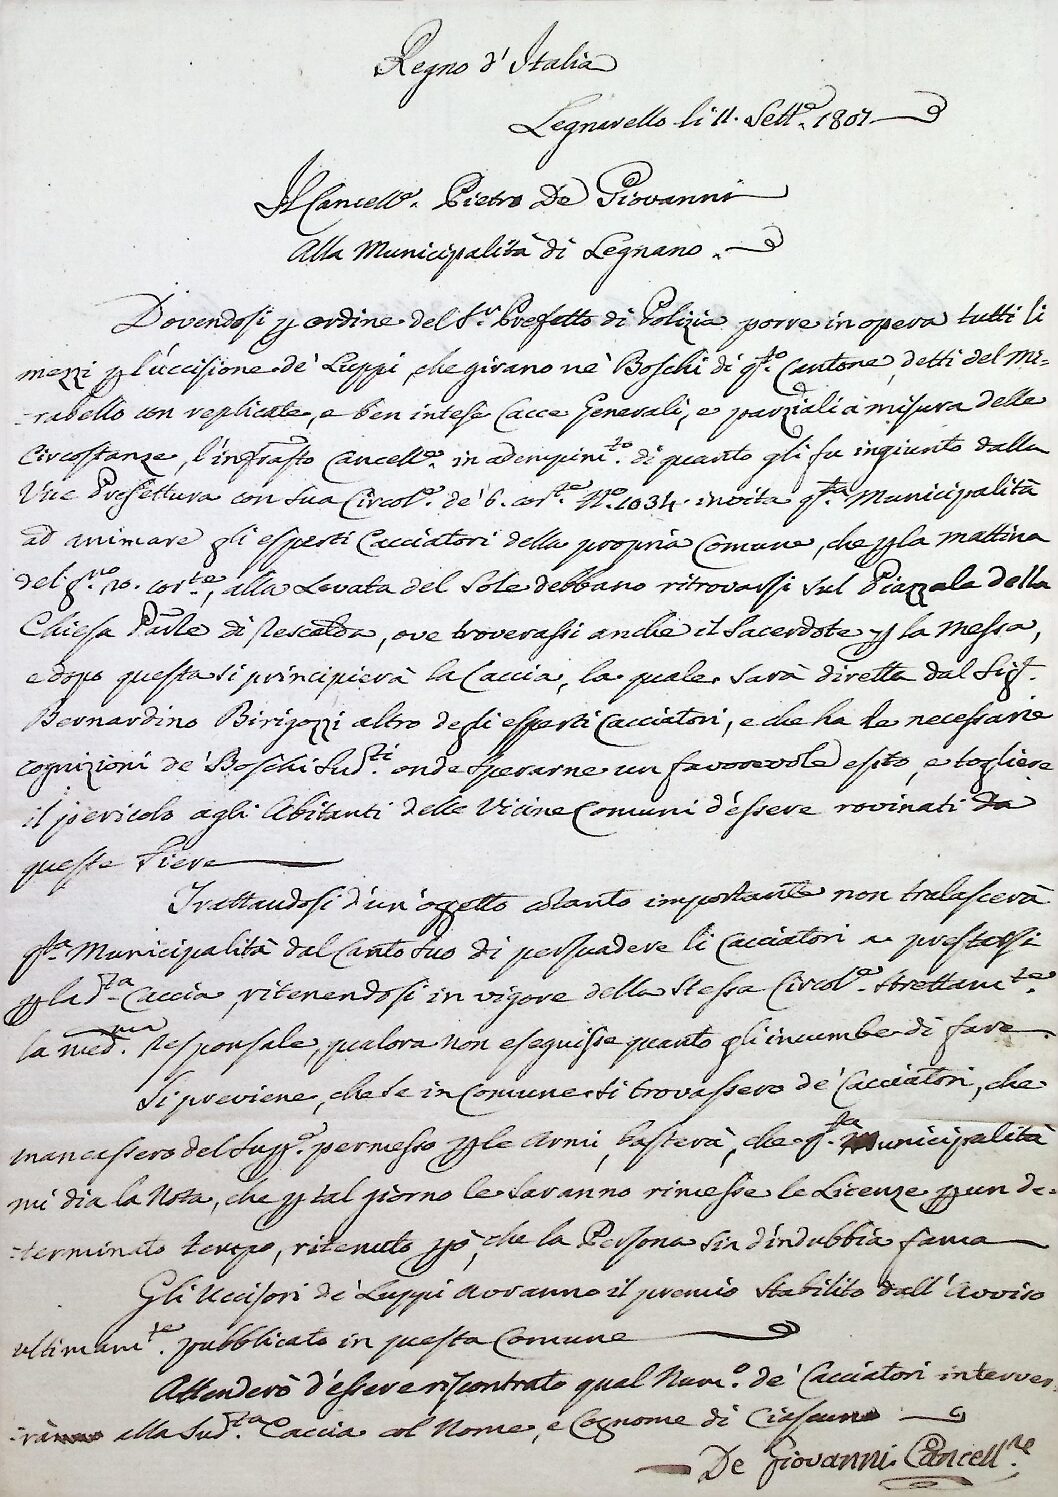 Regno d'Italia
Legnarello li 11. Sett.e 1807
Il Cancell.e Pietro De Giovanni
Alla Municipalità di Legnano.
Dovendosi p ordine del S.r Prefetto di Polizia porre in opera tutti li
mezzi p l'uccisione de' Luppi, che girano ne' Boschi di q.to Cantone, detti del Mi=
=rabello con replicate, e ben intese Cacce Generali, e parziali a misura delle
Circostanze, l'infrasto Cancell.e in adempim.to di quanto gli fu ingiunto dalla
Vice Prefettura con sua Circol.e de' 6. cor.te N.o 1034. invita q.ta Municipalità
ad animare gli esperti Cacciatori della propria Comune, che p la mattina
del g.no 20. cor.te, alla Levata del Sole debbano ritrovarsi sul Piazzale della
Chiesa Par.le di Rescalda, ove troverassi anche il Sacerdote p la Messa,
e dopo questa si principierà la Caccia, la quale sarà diretta dal Sig.r
Bernardino Birigozzi altro degli esperti Cacciatori, e che ha le necessarie
cognizioni de' Boschi sud.ti onde sperarne un favorevole esito, e togliere
il pericolo agli Abitanti delle Vicine Comuni d'essere rovinati da
queste Fiere
Trattandosi d'un oggetto cotanto importante non tralascerà
q.ta Municipalità dal Canto suo di persuadere li Cacciatori a prestarsi
p la d.ta Caccia, ritenendosi in vigore della stessa Circol.e strettam.te
la med.ma Responsale, qualora non eseguisse quanto gli incumbe di fare.
Si previene, che se in Comune si trovassero de' Cacciatori, che
mancassero del sup.e permesso p le Armi, basterà, che q.ta Municipalità
mi dia la Nota, che p tal giorno le saranno rimesse le Licenze p un de=
=terminato tempo, ritenuto pò, che la Persona sia d'indubbia fama
Gli Uccisori de' Luppi avranno il premio stabilito dall'Avviso
ultimam.te pubblicato in questa Comune
Attenderò d'essere riscontrato qual Num.o de' Cacciatori interver=
=rà alla sud.ta Caccia col Nome, e Cognome di Ciascuno
De Giovanni Cancell.re